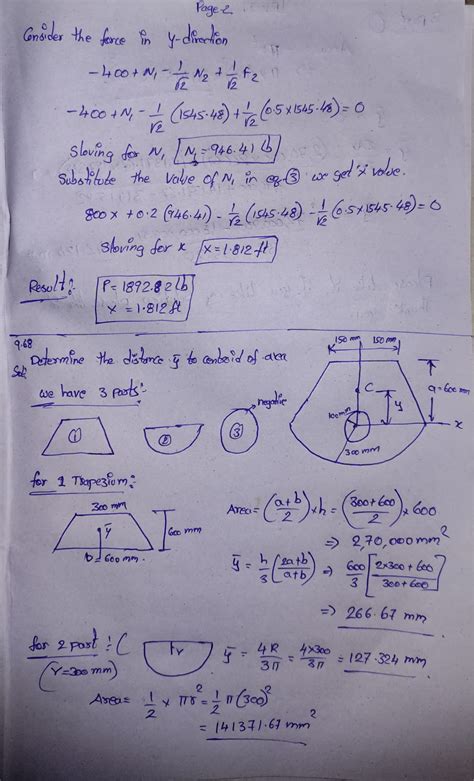 Page 2
Consider the force in y-direction
-400 + N₁ - 1/√2 N₂ + 1/√2 F₂
-400 + N₁ - 1/√2 (1545.48) + 1/√2 (0.5x1545.48) = 0
Sloving for N₁ N₁ = 946.41 lb
Substitute the Value of N₁ in eq ③ we get 'x' value.
800x + 0.2 (946.41) - 1/√2 (1545.48) - 1/√2 (0.5x1545.48) = 0
Sloving for x x = 1.812 ft
Result:-
P = 1892.82 lb
x = 1.812 ft
9.68
Sol:
Determine the distance ȳ to centroid of area
we have 3 parts:-
① ② ③ negative
150 mm 150 mm
C
ȳ
a = 600 mm
100mm
x
300 mm
for 1 Trapezium:-
300 mm
ȳ
600 mm
b = 600 mm
Area = (a+b/2) x h = (300+600/2) x 600
⇒ 2,70,000 mm²
ȳ = h/3 (2a+b/a+b) ⇒ 600/3 [2x300+600/300+600]
⇒ 266.67 mm
for 2 part :- (
(r=300 mm)
r
ȳ = 4R/3π = 4x300/3π = 127.324 mm
Area = 1/2 x πr² = 1/2 π(300)²
= 141371.67 mm²